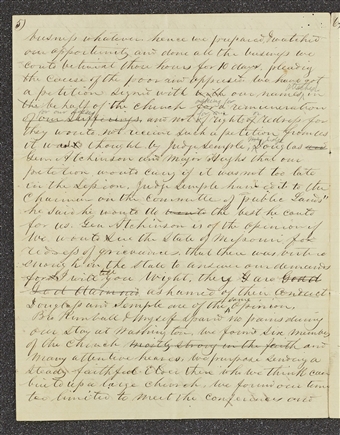 5)
busings whatever hence we prepared & watched
our opportunity and done all the busings we
could between those hours for 10 days pleading
the cause of the poor and oppressed we have got
a petition signed with our names in
the behalf of the church asking for a remuneration
of our sufferings, and not of right of redress for
they would not receive such a petition from us
it was thought by Judge Semple, Douglas
Gen. Atchinson and Major Hughs that our
petition would carry if it was not too late
in the Session. Judge Semple handed it to the
Chairman on the Committee of "public Lands"
he said he would do the best he could
for us. Gen Atchinson is of the opinion if
We would sue the State of Missouri for
redress of grievances, that there was virtue
enough in the state to answer our demands
for I will tell you Wright, they are
ashamed of their conduct
Douglass and Semple are of the same opinion.
Bro Kimball & Myself spared no pains during
our Stay at Washington, we found Six members
of the Church mostly strong in the faith and
Many attentive hearers. We purpose sending a
Steady faithful Elder there who we think can
build up a large church, we found our time
too limited to meet the conferences and